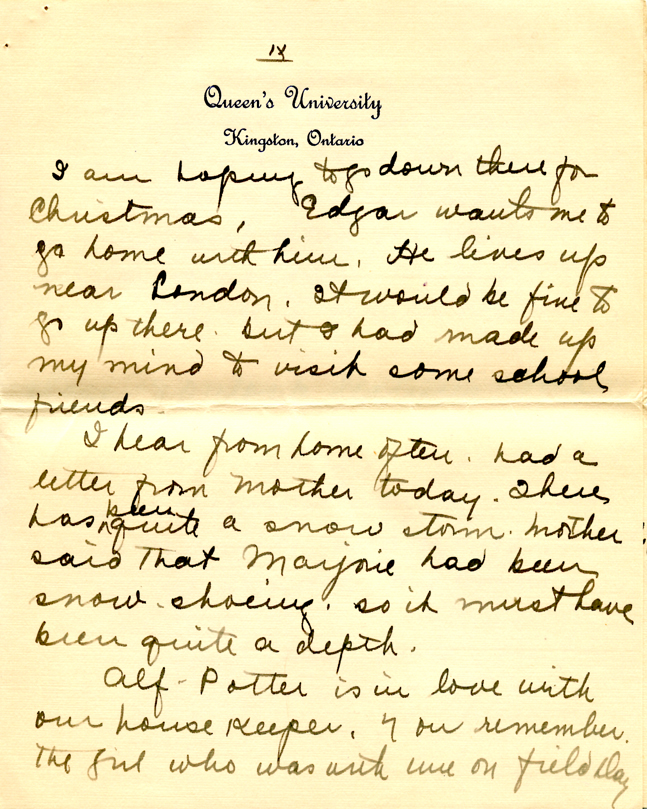 IX
Queen's University
Kingston, Ontario
I am hoping to go down there for
Christmas, Edgar wants me to
go home with him. He lives up
near London. It would be fine to
go up there. but I had made up
my mind to visit some school
friends.
I hear from home often. had a
letter from Mother today. There
has been quite a snow storm. Mother
said that Marjorie had been
snow-shoeing. so it must have
been quite a depth.
Alf-Potter is in love with
our house keeper. You remember.
the girl who was with me on field Day